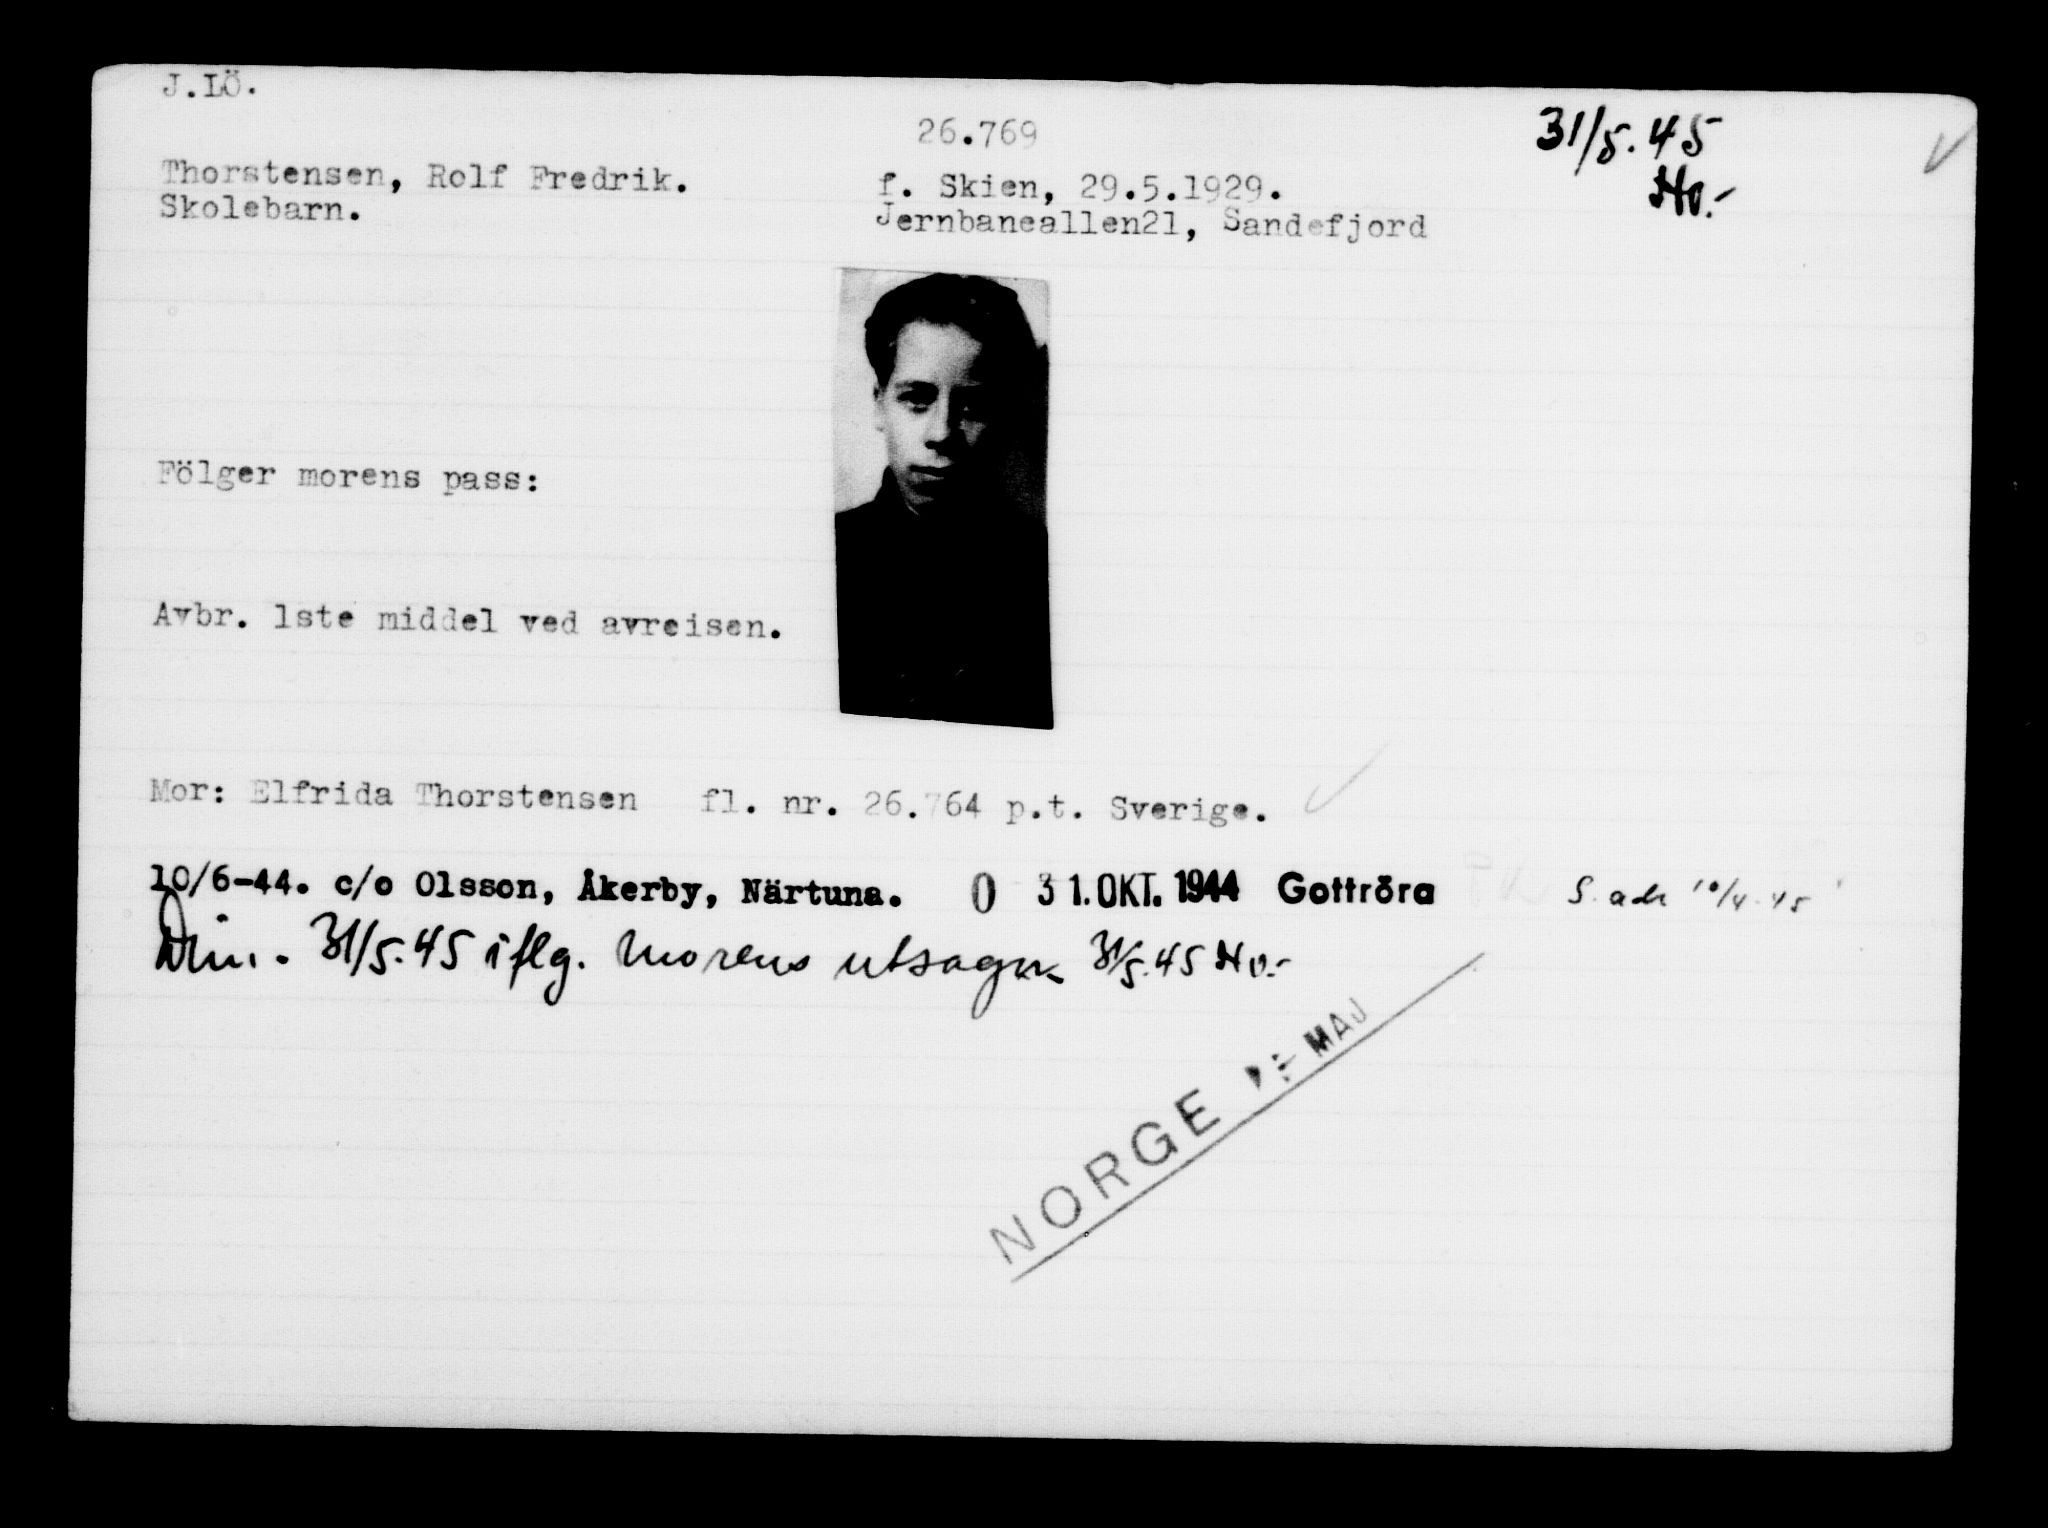 J.LÖ.
26.769
31/5.45
Hv.-
Thorstensen, Rolf Fredrik.
f. Skien, 29.5.1929.
Skolebarn.
Jernbaneallen21, Sandefjord
Fölger morens pass:
Avbr. 1ste middel ved avreisen.
Mor: Elfrida Thorstensen fl. nr. 26.764 p.t. Sverige.
10/6-44. c/o Olsson, Åkerby, Närtuna. 0 31.OKT.1944 Gottröra S. adr 10/4-45
31/5.45 iflg. morens utsagn 31/5.45 Hv.-
NORGE MAJ